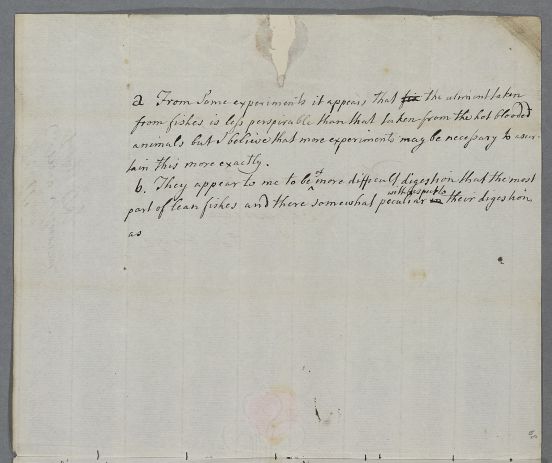 a From Some experiments it appears that the aliment taken
from fishes is less perspirable than that taken from the hot blooded
animals but I believe that more experiments may be necessary to aser-
tain this more exactly.
b. They appear to me to be of more difficult digestion that the most
part of lean fishes and there somewhat peculiar with respect to their digestion
as